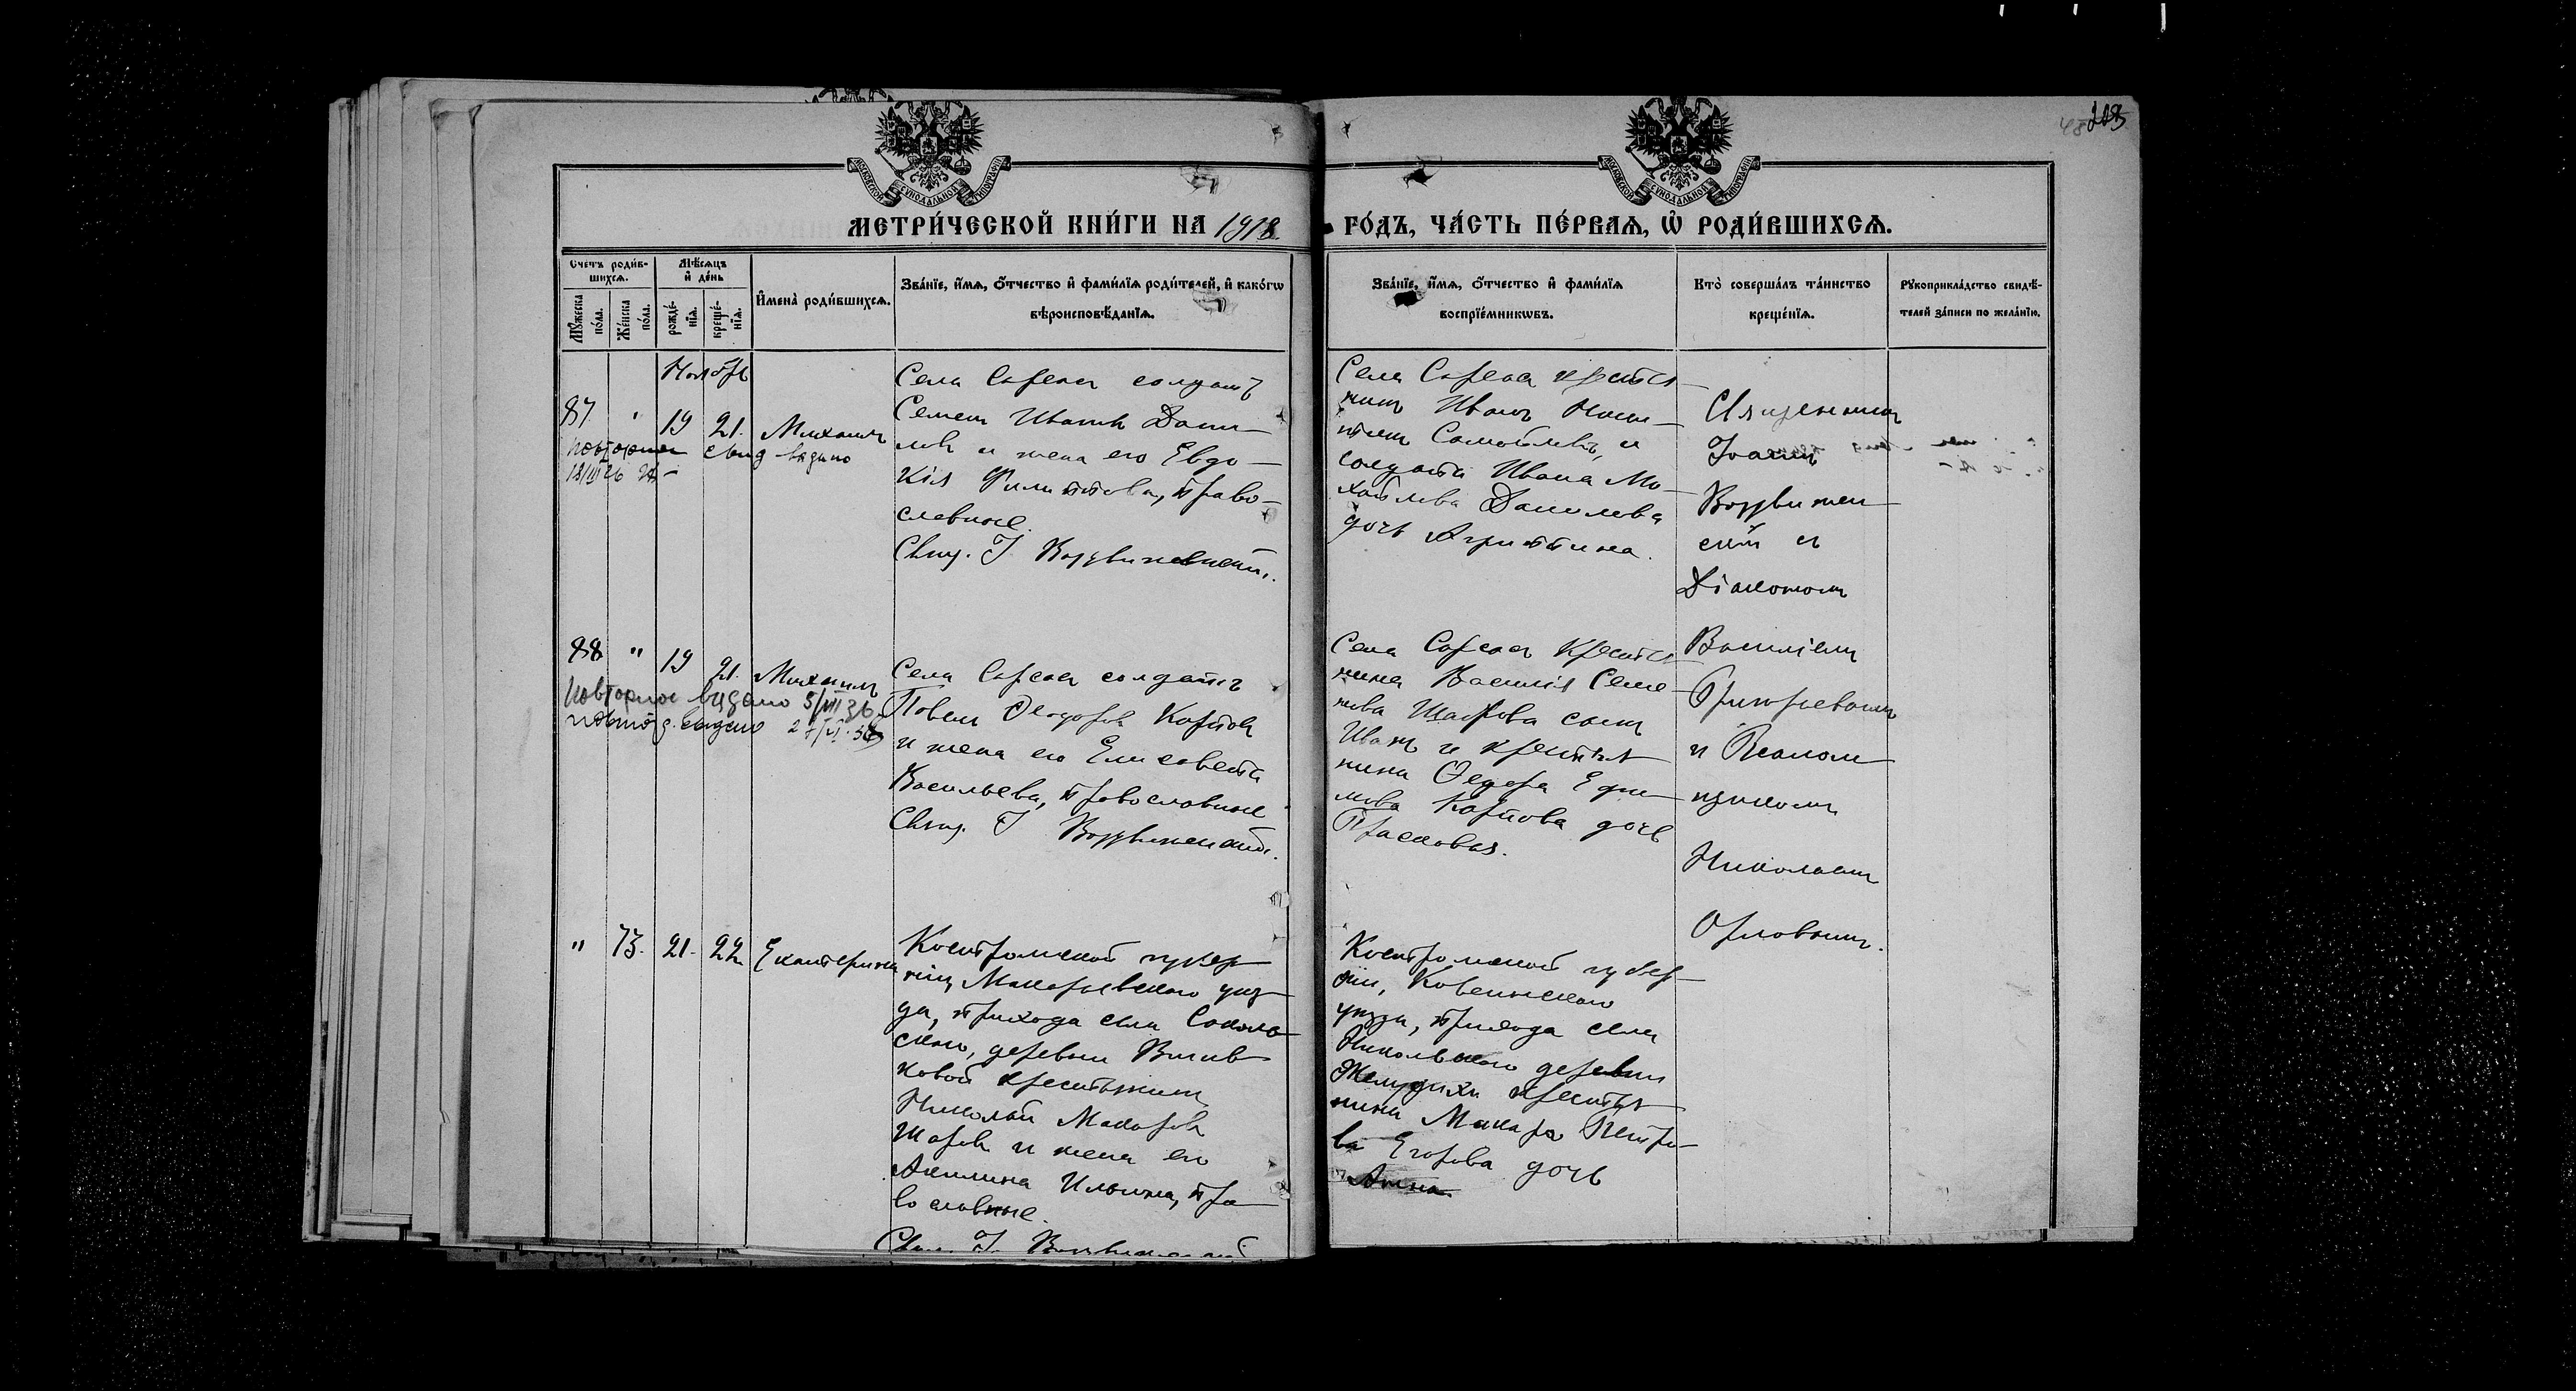 203
МЕТРИ́ЧЕСКОЙ КНИ́ГИ НА 1918 ГО́ДЪ, ЧА́СТЬ ПЕ́РВАЯ, Ѡ҆ РОДИ́ВШИХСѦ.
Счетъ роди́в-
шихсѧ.
Мꙋжеска
по́ла.
Же́нска
по́ла.
Мѣ́сѧцъ
и҆ де́нь
рожде́-
нїѧ.
креще́-
нїѧ.
И҆мена̀ роди́вшихсѧ.
Зва́нїе, и҆́мѧ, ѻ҆́тчество и҆ фами́лїѧ роди́телей, и҆ како́гѡ
вѣроисповѣ́данїѧ.
Зва́нїе, и҆́мѧ, ѻ҆́тчество и҆ фами́лїѧ
воспрїе́мникѡвъ.
Кто̀ соверша́лъ та́инство
креще́нїѧ.
Рꙋкоприкла́дство свидѣ́-
телей за́писи по жела́нїю.
Ноябрь
87. " 19 21. Михаилъ
повторное свид выдано
Села солдатъ
Семенъ Ивановъ Дани-
ловъ и жена его Евдо-
кія Филиппова, право-
славные.
Свящ. І Воздвиженскій.
Села крестья-
нинъ Иванъ
Самойловъ, и
солдата Ивана Ми-
хайлова Данилова
дочь Агриппина.
Священникъ
Іоаннъ
Воздвижен-
скій съ
Діакономъ
Василіемъ
Григорьевымъ
и Псалом-
щикомъ
Николаемъ
Орловымъ.
88 " 19 21. Михаилъ
повторное выдано 5/VIII 36
Села солдатъ
Павелъ Ѳеодоровъ Карповъ
и жена его Елисавета
Васильева, православные
Свящ. І Воздвиженскій.
Села крестья-
нина Василія Семе-
нова сынъ
Иванъ и крестья-
нина Ѳедора Ефи-
мова Карпова дочь
Прасковья.
" 73. 21. 22. Екатерина
Костромской губер-
ніи, Макарьевскаго уѣз-
да, прихода села Соколь-
скаго, деревни
крестьянинъ
Николай Макаровъ
Шаровъ и жена его
Акилина Ильина, пра-
вославные.
Свящ. І. Воздвиженскій
Костромской губер-
ніи, Ковернинскаго
уѣзда, прихода села
Никольскаго деревни
крестья-
нина Макара Петро-
ва Егорова дочь
Анна.